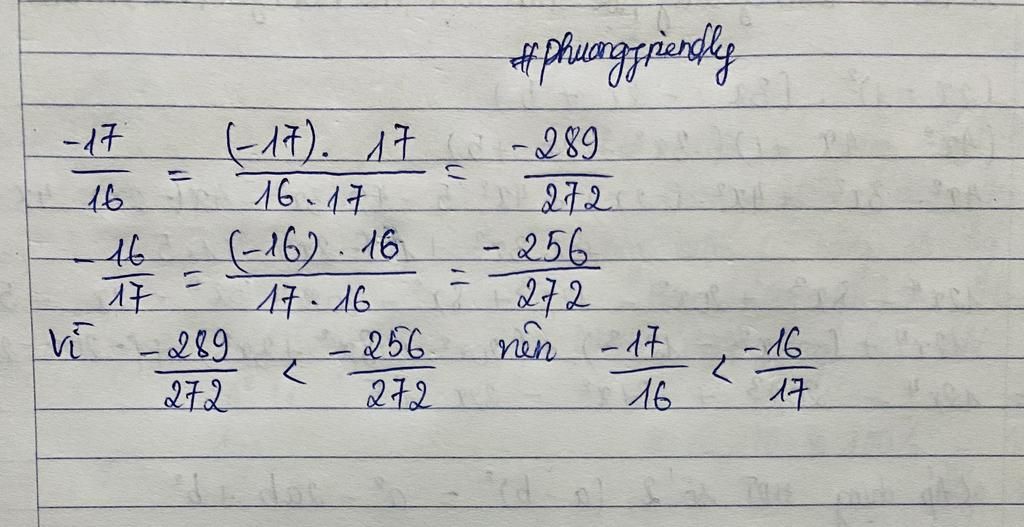 #phuongfriendly
-17/16 = (-17). 17/16.17 = -289/272
-16/17 = (-16). 16/17.16 = -256/272
Vì -289/272 < -256/272 nên -17/16 < -16/17